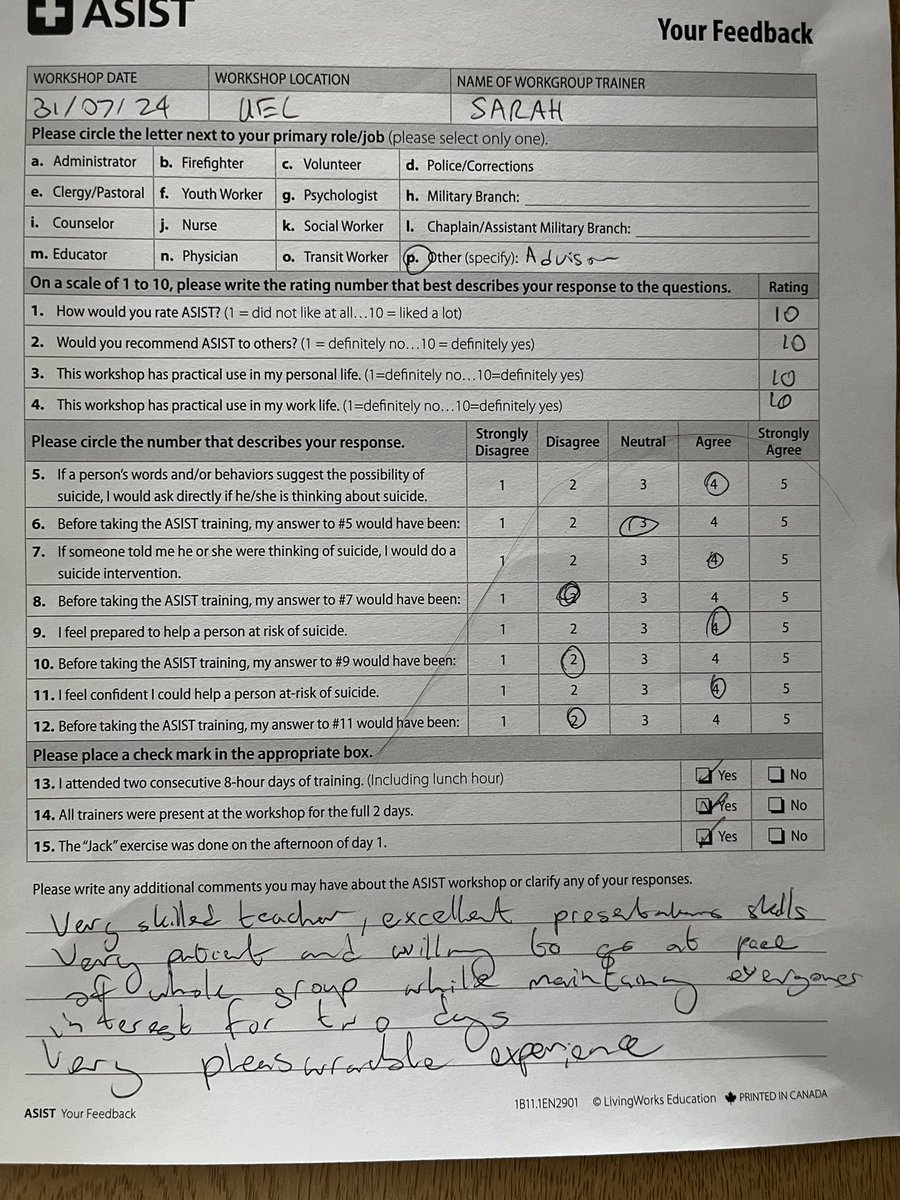 ASIST
Your Feedback
WORKSHOP DATE WORKSHOP LOCATION NAME OF WORKGROUP TRAINER
31/07/24 UEL SARAH
Please circle the letter next to your primary role/job (please select only one).
a. Administrator b. Firefighter c. Volunteer d. Police/Corrections
e. Clergy/Pastoral f. Youth Worker g. Psychologist h. Military Branch:
i. Counselor j. Nurse k. Social Worker l. Chaplain/Assistant Military Branch:
m. Educator n. Physician o. Transit Worker p. Other (specify): Advisor
On a scale of 1 to 10, please write the rating number that best describes your response to the questions. Rating
1. How would you rate ASIST? (1 = did not like at all...10 = liked a lot) 10
2. Would you recommend ASIST to others? (1 = definitely no...10 = definitely yes) 10
3. This workshop has practical use in my personal life. (1=definitely no...10=definitely yes) 10
4. This workshop has practical use in my work life. (1=definitely no...10=definitely yes) 10
Please circle the number that describes your response. Strongly Disagree Disagree Neutral Agree Strongly Agree
5. If a person's words and/or behaviors suggest the possibility of
suicide, I would ask directly if he/she is thinking about suicide. 1 2 3 4 5
6. Before taking the ASIST training, my answer to #5 would have been: 1 2 3 4 5
7. If someone told me he or she were thinking of suicide, I would do a
suicide intervention. 1 2 3 4 5
8. Before taking the ASIST training, my answer to #7 would have been: 1 2 3 4 5
9. I feel prepared to help a person at risk of suicide. 1 2 3 4 5
10. Before taking the ASIST training, my answer to #9 would have been: 1 2 3 4 5
11. I feel confident I could help a person at-risk of suicide. 1 2 3 4 5
12. Before taking the ASIST training, my answer to #11 would have been: 1 2 3 4 5
Please place a check mark in the appropriate box.
13. I attended two consecutive 8-hour days of training. (Including lunch hour) Yes No
14. All trainers were present at the workshop for the full 2 days. Yes No
15. The "Jack" exercise was done on the afternoon of day 1. Yes No
Please write any additional comments you may have about the ASIST workshop or clarify any of your responses.
Very skilled teacher, excellent presentations skills
Very patient and willing to go at pace
off whole group while maintaing everyones
interest for two days
Very pleaswrable experience
ASIST Your Feedback
1B11.1EN2901 © LivingWorks Education PRINTED IN CANADA